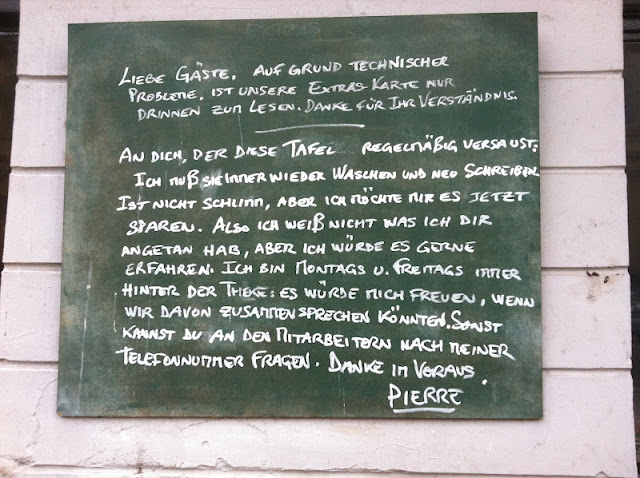 EXTRAS
LIEBE GÄSTE, AUF GRUND TECHNISCHER
PROBLEME, IST UNSERE EXTRAS-KARTE NUR
DRINNEN ZUM LESEN. DANKE FÜR IHR VERSTÄNDNIS.
AN DICH, DER DIESE TAFEL REGELMÄßIG VERSAUST:
ICH MUß SIE IMMER WIEDER WASCHEN UND NEU SCHREIBEN.
IST NICHT SCHLIMM, ABER ICH MÖCHTE MIR ES JETZT
SPAREN. ALSO ICH WEIß NICHT WAS ICH DIR
ANGETAN HAB, ABER ICH WÜRDE ES GERNE
ERFAHREN. ICH BIN MONTAGS U. FREITAGS IMMER
HINTER DER THEKE: ES WÜRDE MICH FREUEN, WENN
WIR DAVON ZUSAMMEN SPRECHEN KÖNNTEN. SONST
KANNST DU AN DEN MITARBEITERN NACH MEINER
TELEFONNUMMER FRAGEN. DANKE IM VORAUS
PIERRE